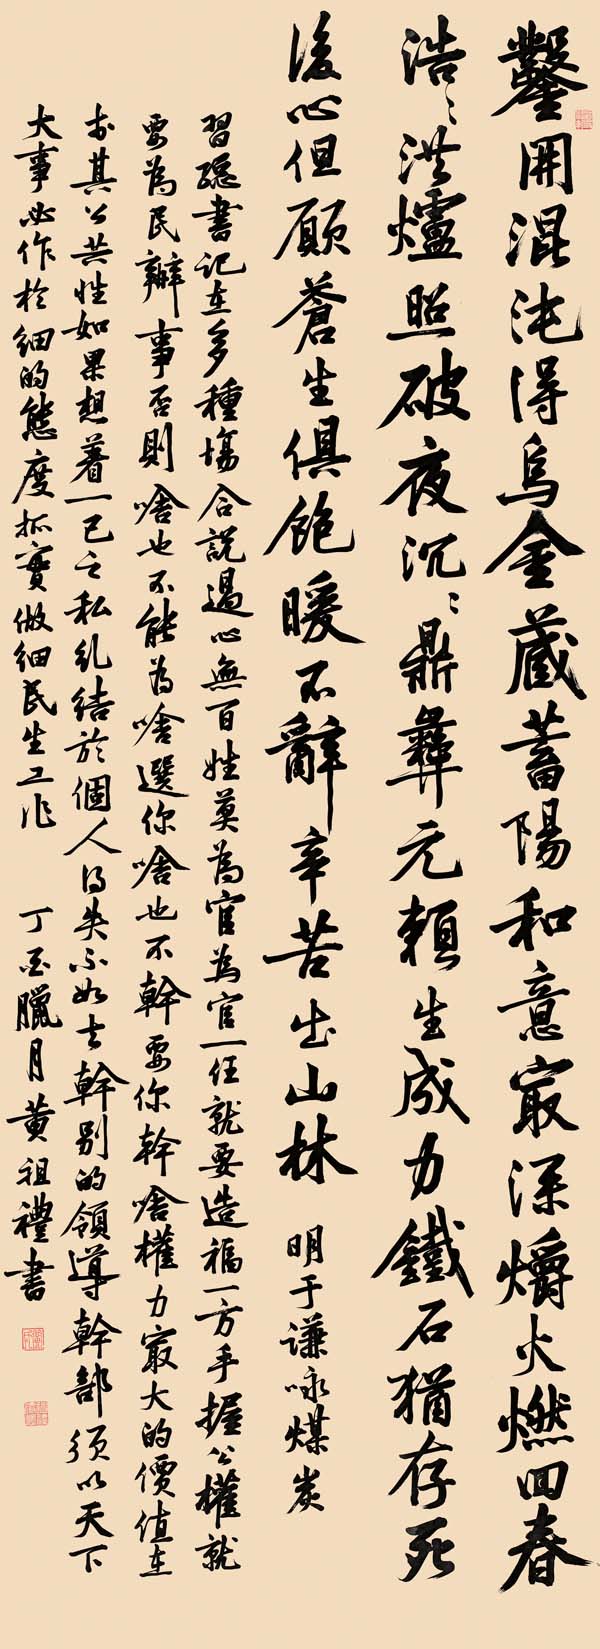 鑿開混沌得烏金藏蓄陽和意最深爝火燃回春
浩々洪爐照破夜沉々鼎彝元賴生成力鐵石猶存死
後心但願蒼生俱飽暖不辭辛苦出山林 明于謙咏煤炭
習總書記在多種場合說過心無百姓莫為官為官一任就要造福一方手握公權就
要為民辦事否則啥也不能為啥選你啥也不幹要你幹啥權力最大的價值在
於其公共性如果想着一己之私糺結於個人得失不如去幹別的領導幹部須以天下
大事必作於細的態度抓實做細民生工作 丁酉臘月黃祖禮書